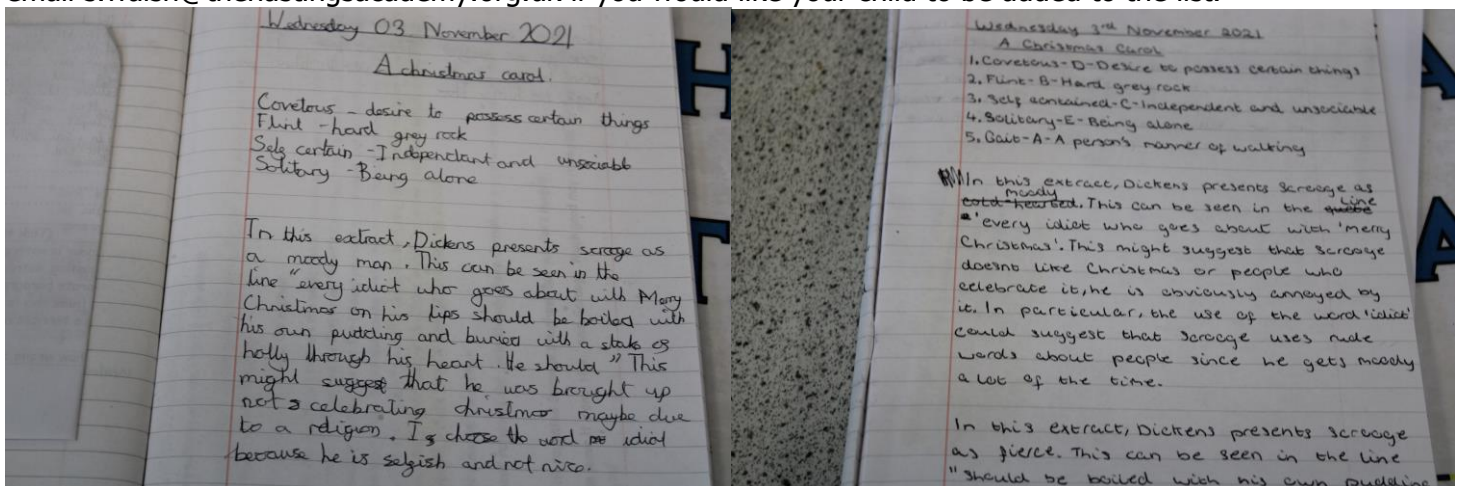 email s.walsh@thehastingsacademy.org.uk if you would like your child to be added to the list.
Wednesday 03 November 2021
A christmas carol.
Covetous - desire to possess certain things
Flint - hard grey rock
Selg certain - Independant and unsociabb
Solitary - Being alone
In this extract, Dickens presents scroge as
a moody man. This can be seen in the
line "every idiot who goes about with Merry
Christmas on his lips should be boiled with
his own pudding and buried with a stake of
holly through his heart. He should" This
might suggest that he was brought up
not celebrating christmas maybe due
to a religion. I choose the word idiot
because he is selgish and not nice.
Wednesday 3rd November 2021
A Christmas Carol
1. Covetous - D - Desire to possess certain things
2. Flint - B - Hard grey rock
3. Self contained - C - Independent and unsociable
4. Solitary - E - Being alone
5. Gait - A - A person's manner of walking
In this extract, Dickens presents Scrooge as
moody
cold hearted. This can be seen in the line
'every idiot who goes about with 'merry
Christmas'. This might suggest that Scrooge
doesnt like Christmas or people who
celebrate it, he is obviously annoyed by
it. In particular, the use of the word 'idiot'
could suggest that Scrooge uses rude
words about people since he gets moody
a lot of the time.
In this extract, Dickens presents Scrooge
as fierce. This can be seen in the line
"should be boiled with his own pudding
H
T
A
A